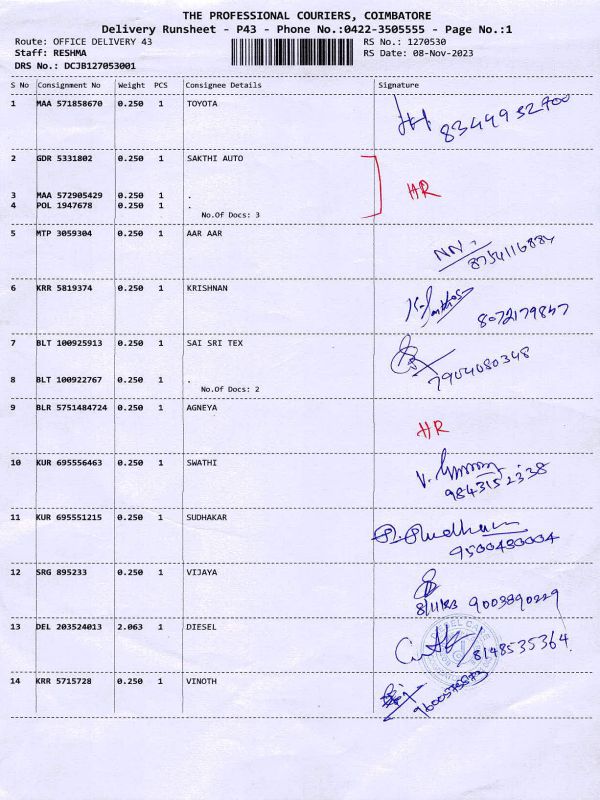 THE PROFESSIONAL COURIERS, COIMBATORE
Delivery Runsheet - P43 - Phone No.:0422-3505555 - Page No.:1
Route: OFFICE DELIVERY 43 RS No.: 1270530
Staff: RESHMA RS Date: 08-Nov-2023
DRS No.: DCJB127053001
S No Consignment No Weight PCS Consignee Details Signature
1 MAA 571858670 0.250 1 TOYOTA
8344932700
2 GDR 5331802 0.250 1 SAKTHI AUTO
HR
3 MAA 572905429 0.250 1 .
4 POL 1947678 0.250 1 .
No.Of Docs: 3
5 MTP 3059304 0.250 1 AAR AAR
NN.
8754116884
6 KRR 5819374 0.250 1 KRISHNAN
8072179847
7 BLT 100925913 0.250 1 SAI SRI TEX
7904080348
8 BLT 100922767 0.250 1 .
No.Of Docs: 2
9 BLR 5751484724 0.250 1 AGNEYA
HR
10 KUR 695556463 0.250 1 SWATHI
9843152338
11 KUR 695551215 0.250 1 SUDHAKAR
9500430004
12 SRG 895233 0.250 1 VIJAYA
8/11/23 9003890229
13 DEL 203524013 2.063 1 DIESEL
8148535364
14 KRR 5715728 0.250 1 VINOTH